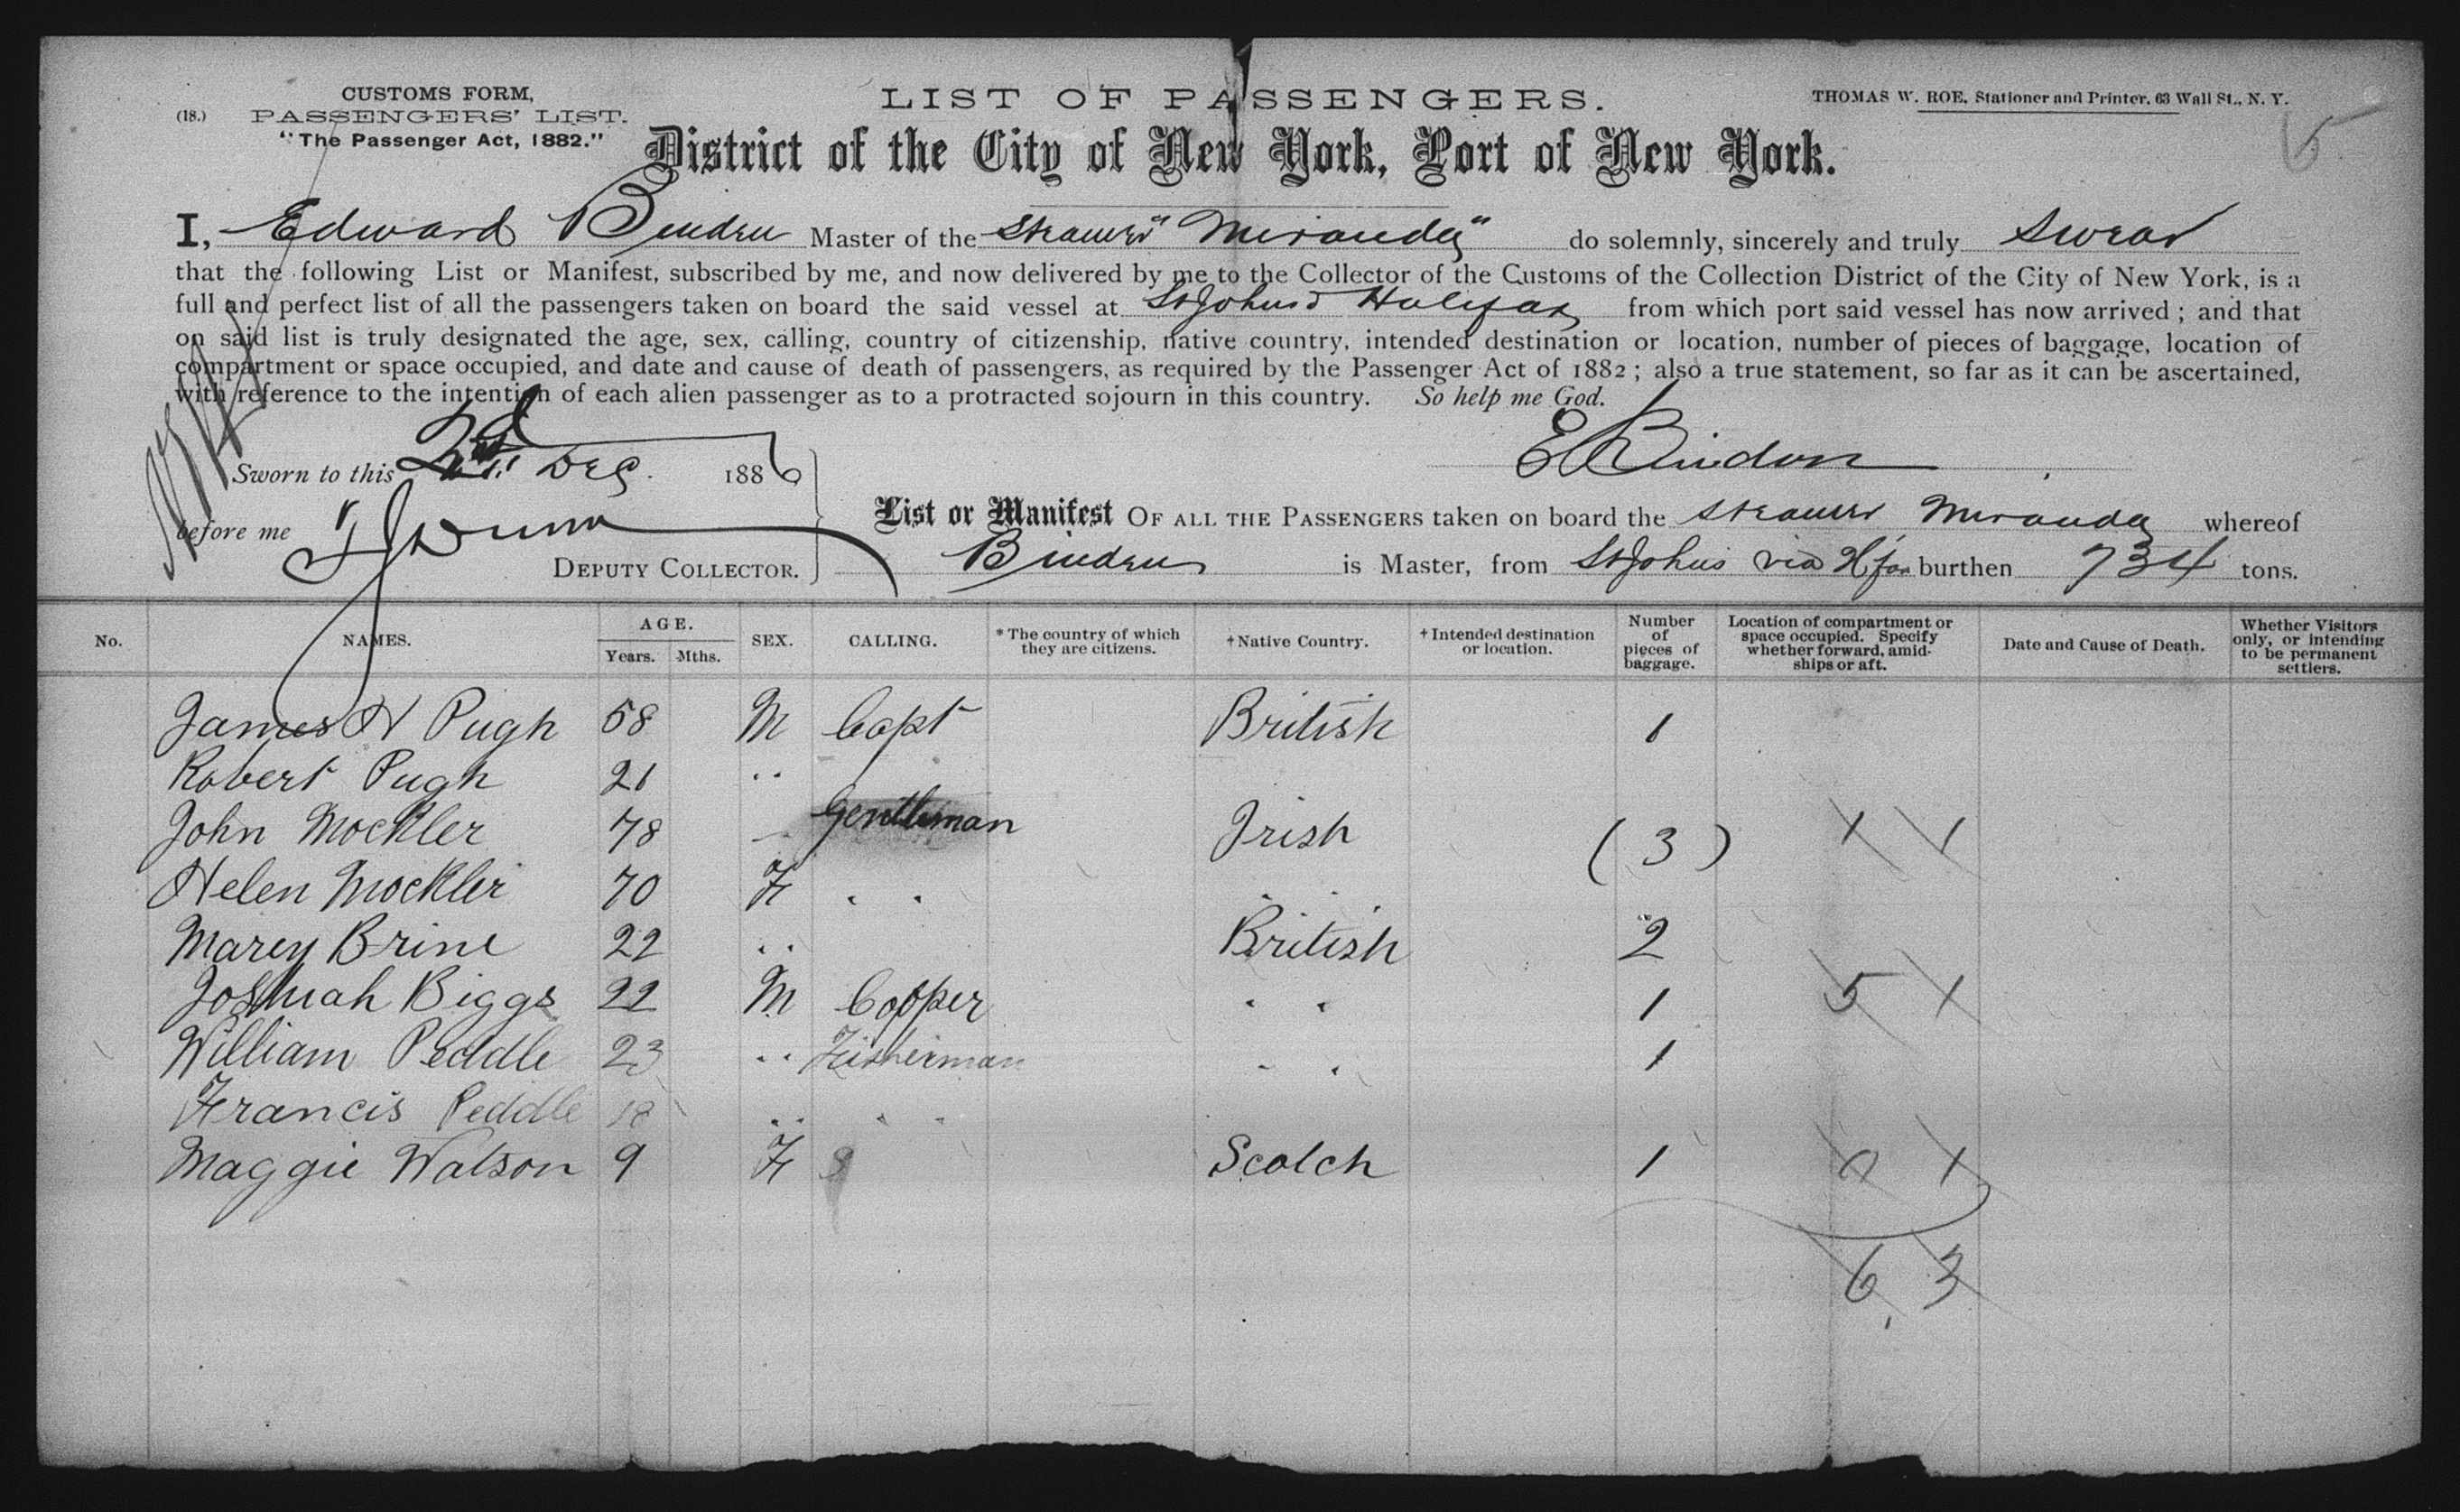 CUSTOMS FORM,
(18.) PASSENGERS' LIST.
"The Passenger Act, 1882."
LIST OF PASSENGERS.
THOMAS W. ROE, Stationer and Printer, 63 Wall St., N. Y.
5
District of the City of New York, Port of New York.
I, Edward Binden Master of the Steamer "Miranda" do solemnly, sincerely and truly Swear
that the following List or Manifest, subscribed by me, and now delivered by me to the Collector of the Customs of the Collection District of the City of New York, is a
full and perfect list of all the passengers taken on board the said vessel at St Johns & Halifax from which port said vessel has now arrived ; and that
on said list is truly designated the age, sex, calling, country of citizenship, native country, intended destination or location, number of pieces of baggage, location of
compartment or space occupied, and date and cause of death of passengers, as required by the Passenger Act of 1882 ; also a true statement, so far as it can be ascertained,
with reference to the intention of each alien passenger as to a protracted sojourn in this country. So help me God.
E Bindon
Sworn to this 2d Dec. 1886
before me
DEPUTY COLLECTOR.
List or Manifest OF ALL THE PASSENGERS taken on board the Steamer Miranda whereof
Binden is Master, from St Johns via Hfax burthen 734 tons.
No. NAMES. AGE. Years. Mths. SEX. CALLING. *The country of which they are citizens. †Native Country. †Intended destination or location. Number of pieces of baggage. Location of compartment or space occupied. Specify whether forward, amidships or aft. Date and Cause of Death. Whether Visitors only, or intending to be permanent settlers.
James H Pugh 58 M Capt British 1
Robert Pugh 21 ..
John Mockler 78 Gentleman Irish (3) 1 1
Helen Mockler 70 F . . . .
Marey Brine 22 .. British 2
Joshuah Biggs 22 M Copper . . 1 5 1
William Peddle 23 .. Fisherman . . 1
Francis Peddle 18 .. . .
Maggie Watson 9 F Scotch 1 0 1
6 3